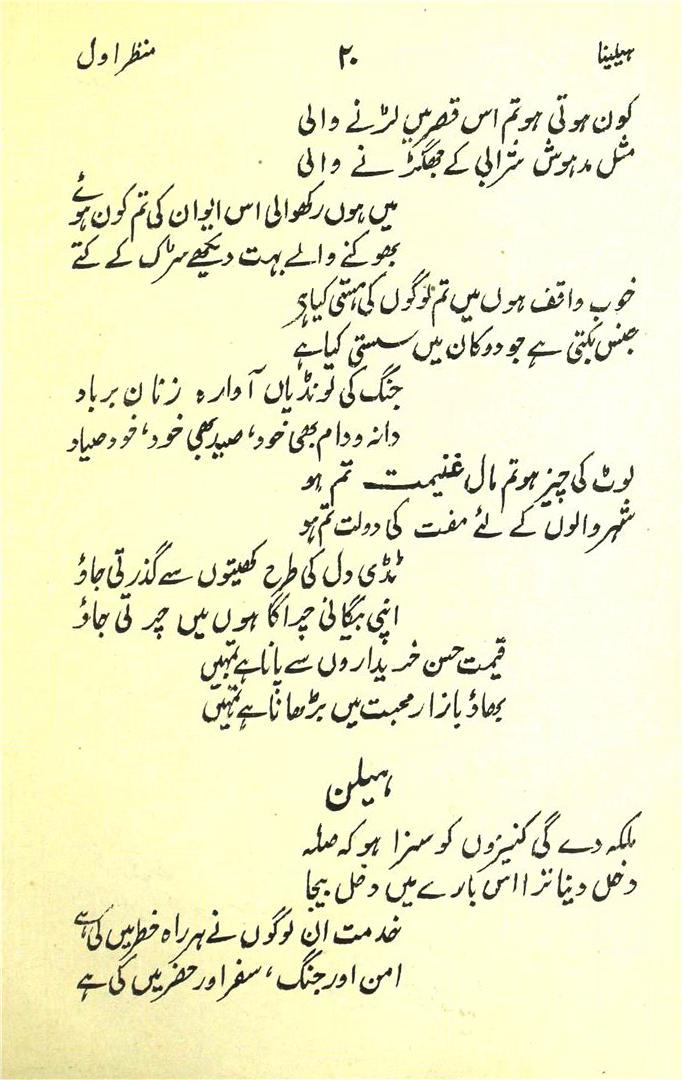 ہیلینا ۲۰ منظر اول
کون ہوتی ہو تم اس قصر میں لڑنے والی
مثل مدہوش شرابی کے جھگڑنے والی
میں ہوں رکھوالی اس ایوان کی تم کون ہوئے
بھوکنے والے بہت دیکھے سڑک کے کتے
خوب واقف ہوں میں تم لوگوں کی ہستی کیا ہے
جنس بکتی ہے جو دوکان میں سستی کیا ہے
جنگ کی لونڈیاں آوارہ زنان برباد
دانہ و دام بھی خود، صید بھی خود، خود صیاد
لوٹ کی چیز ہو تم مال غنیمت تم ہو
شہر والوں کے لئے مفت کی دولت تم ہو
ٹڈی دل کی طرح کھیتوں سے گذرتی جاؤ
اپنی بیگانی چراگاہوں میں چرتی جاؤ
قیمت حسن خریداروں سے پانا ہے تمہیں
بھاؤ بازار محبت میں بڑھانا ہے تمہیں
ہیلن
ملکہ دے گی کنیزوں کو سزا ہو کہ صلہ
دخل دینا ترا اس بارے میں دخل بیجا
خدمت ان لوگوں نے ہر راہ خطر میں کی ہے
امن اور جنگ، سفر اور حضر میں کی ہے